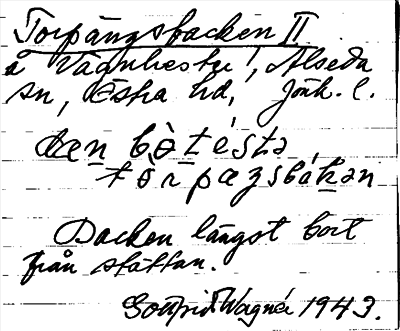 Torpängsbacken II
å Vagnhester, Alseda
sn, Östra hd, Jönk. l.
dæn bòtésta
tòrpæŋsbákən
Backen längst bort
från slättan.
Gottfrid Wagnér 1943.